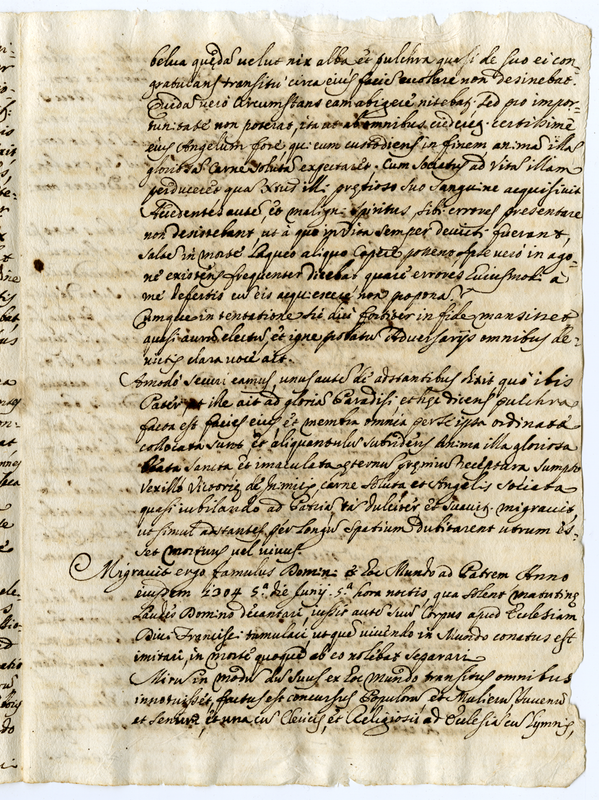 belua quędã velut nix alba et pulchra quasi de suo ei con-
gratulans transitu circa eius faciē evolare non desinebat.
Quidã vero circumstans eam abigere nitebat. Sed pro impor-
tunitate non poterat, ita ut ab omnibus certissimè
eius Angelum fore qui eum custodiens in finem animã illã
gloriosã Carne solutã expectaret. Cum sociatus ad vitã illam
perduceret quã Xtus illi pretioso suo sanguine acquisivit
Accedentes autē eo maligni spiritus sibi errores presentare
non desistebant ut à quo in vita semper devicti fuerant,
saltē in morte laqueo aliquo capere possent ipse vero in ago-
ne existens frequenter dicebat quare errores huiusmodi à
me
Cumque in tentatione sic diu fortiter in fide mansisset
quasi aurū electū et igne probatus Adversarijs omnibus de-
victis clara voce ait.
Amodò securi eamus, unus autē de adstantibus dixit quò itis
Pater et ille ait ad gloriã Paradisi et hęc dicens pulchra
facta est facies eius et membra omnia per se ipsa ordinatã
collocata sunt et aliquantulus subridens Anima illa gloriosa
Beata sancta et immaculata ęternus pręmius receptura sumpto
vexillo victorię de inimicis carne soluta et Angelis sociata
quasi iubilando ad Patria dulciter et suavitr. migravit
ut simul adstantes per longū spatium dubitarent utrum es-
set mortuus vel vivus.
Migravit ergo famulus Domini ex hoc Mundo ad Patrem Anno
eiusdem 1304 5.ª die Junij. 5.ª hora noctis, qua solent matutinę
Laudes Domino decantari, iussit autē suū corpus apud Ecclesiam
Divi Francisci tumulari ut quē vivendo in Mundo conatus est
imitari in morte quoque ab eo nolebat separari
Miru in modū dū suus ex hoc mundo transitus omnibus
innotuisset, factus est concursus Populorū et Mulierū Juvenū
et Senum, et una cū Clericis, et Religiosis ad Ecclesiã cū Hymnis,